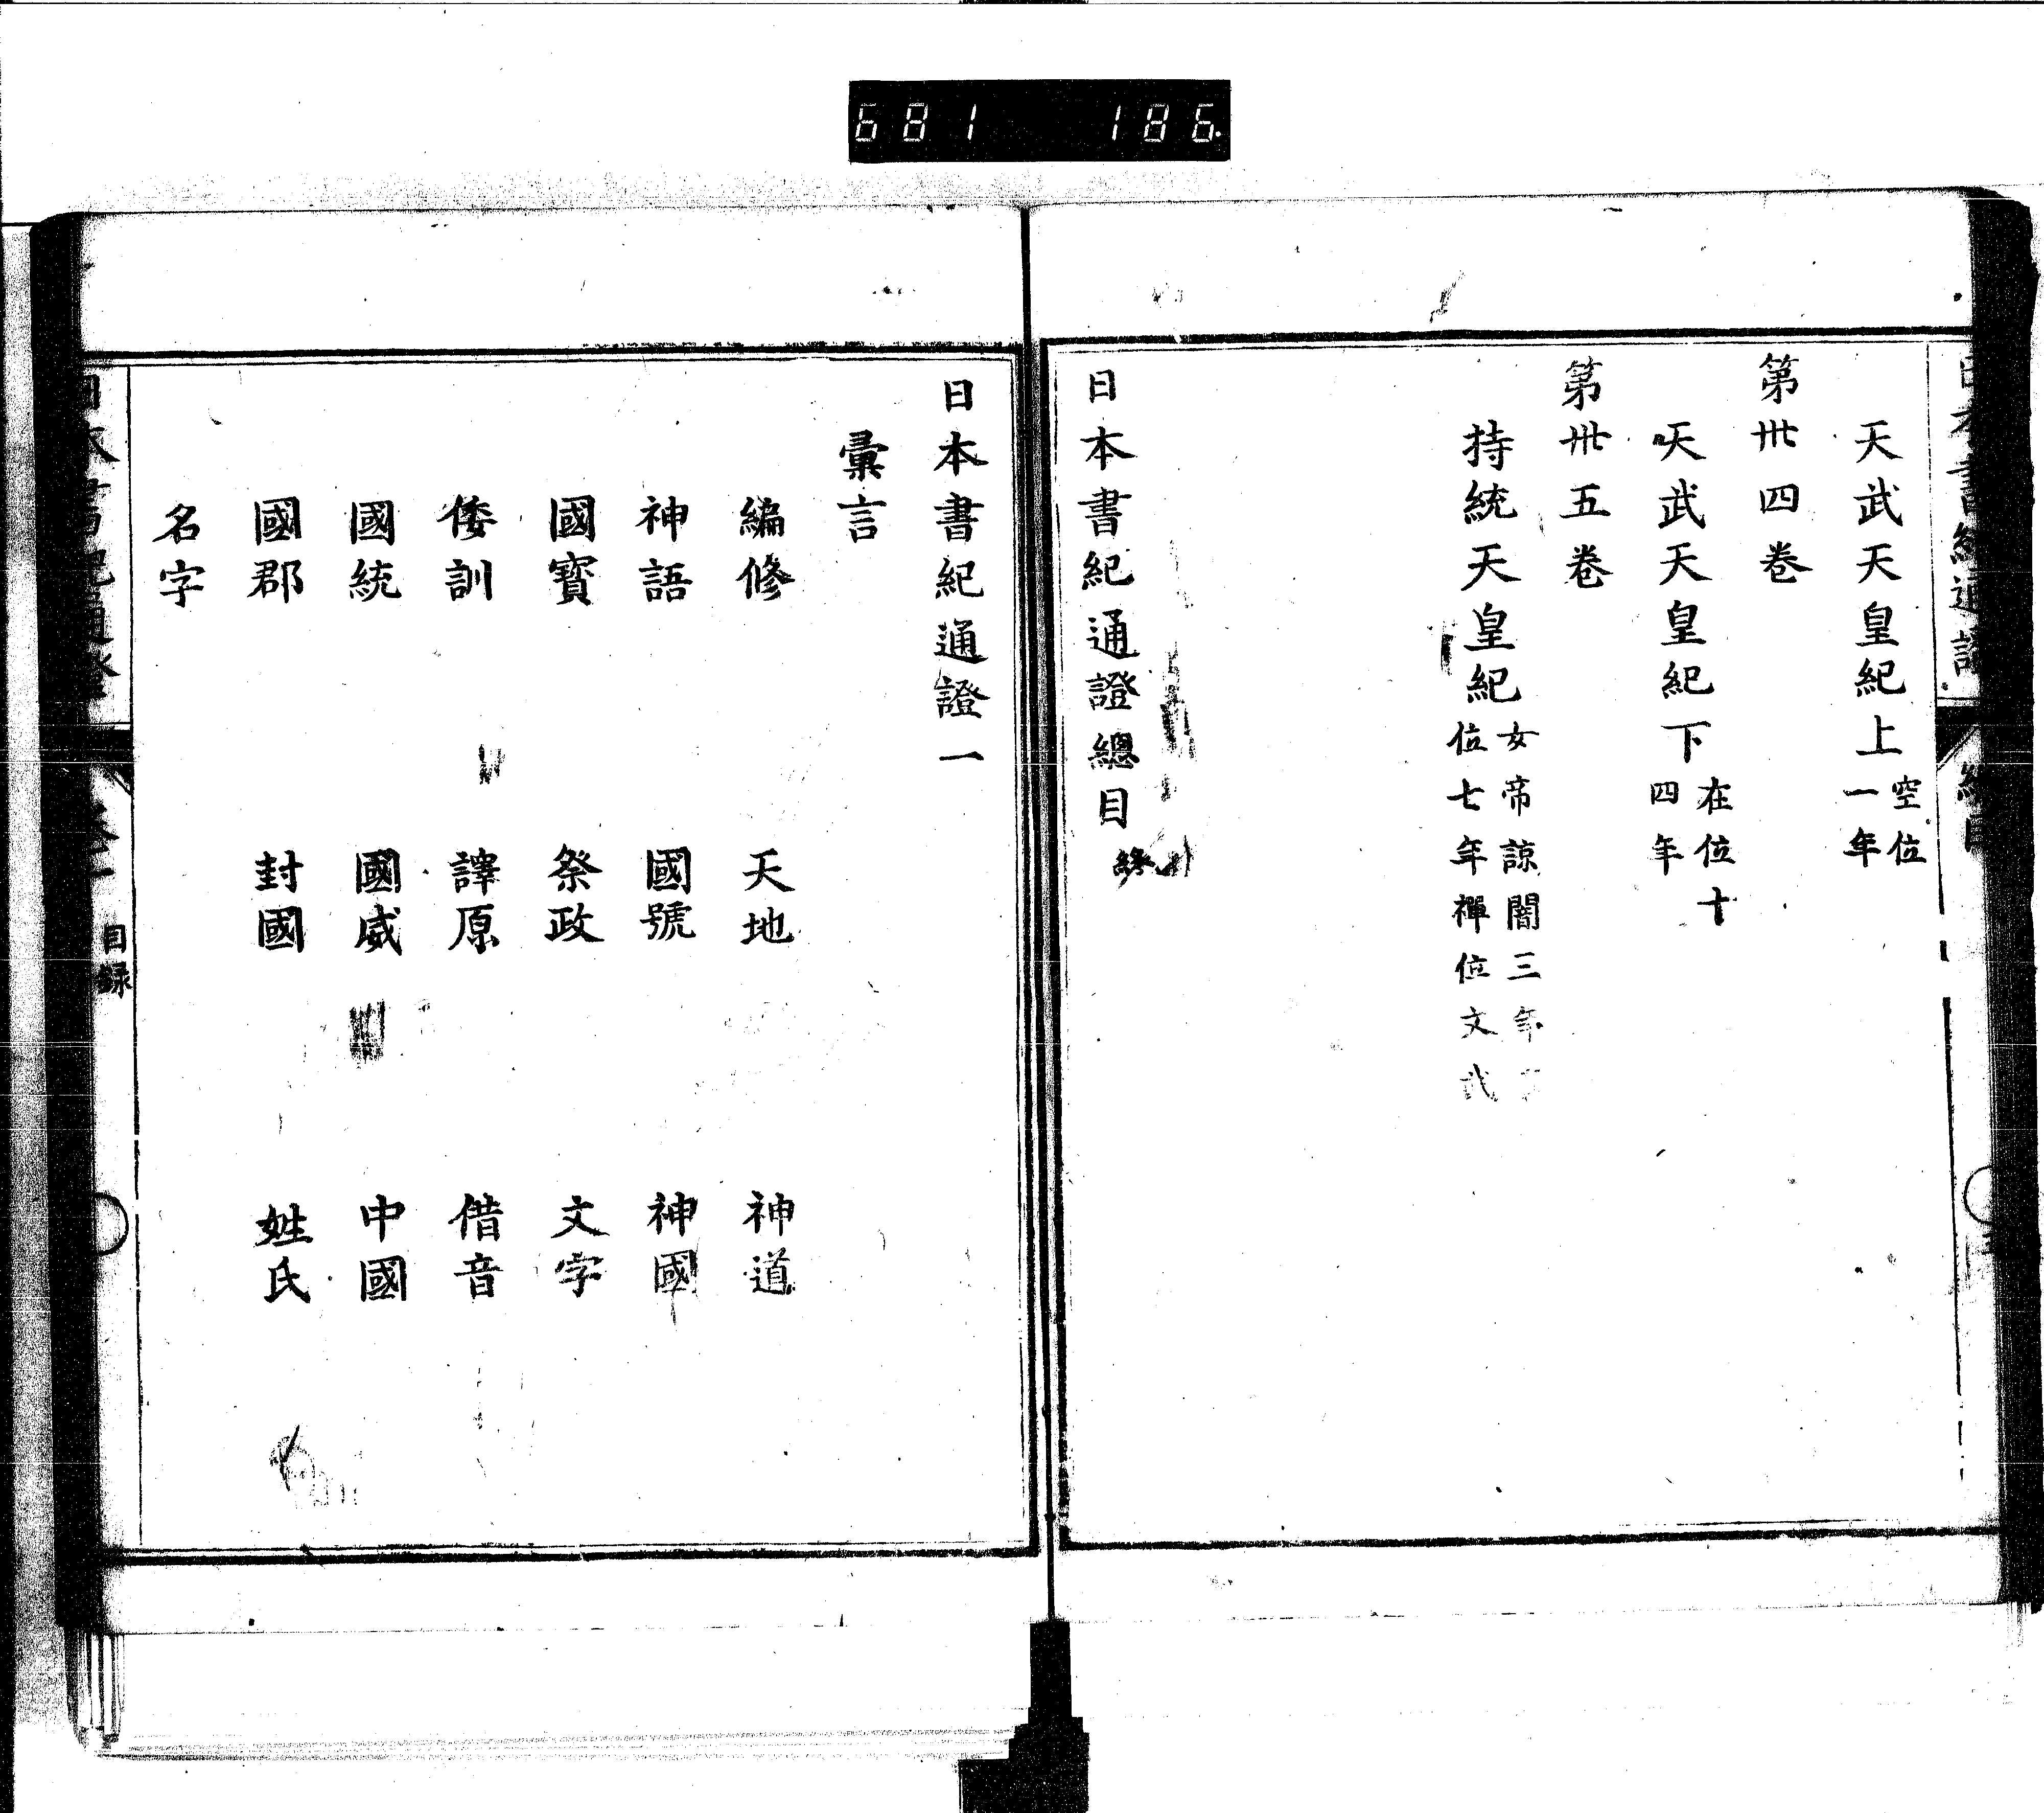 681 186
天武天皇紀上 空位一年
第卅四卷
天武天皇紀下 在位十四年
第卅五卷
持統天皇紀 女帝諒闇三年 位七年禪位文武
日本書紀通證總目 終
日本書紀通證一
彙言
編修 天地 神道
神語 國號 神國
國寶 祭政 文字
倭訓 譯原 借音
國統 國威 中國
國郡 封國 姓氏
名字
目録